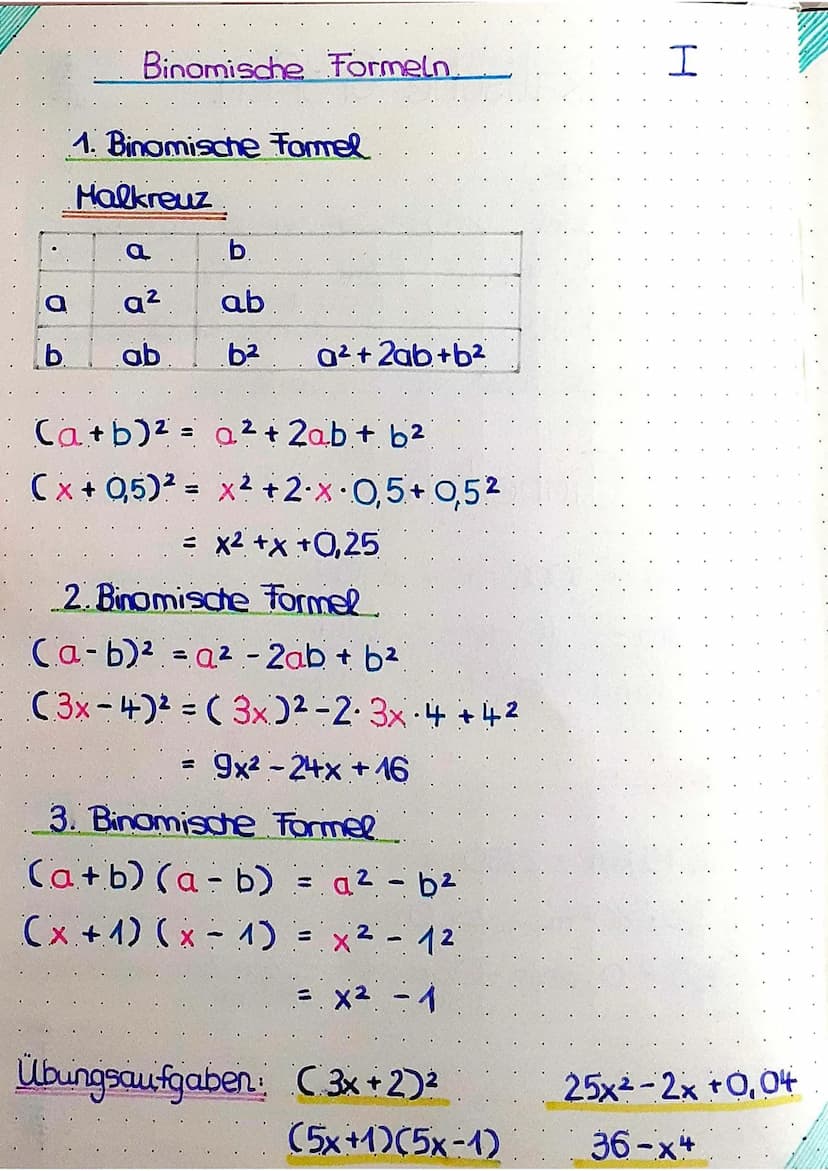 Binomische Formeln I
1. Binomische Formel
Malkreuz
· a b
a a² ab
b ab b² a²+2ab+b²
(a+b)² = a²+2ab+b²
(x+0,5)² = x²+2·x·0,5+0,5²
= x²+x+0,25
2. Binomische Formel
(a-b)² = a²-2ab+b²
(3x-4)² = (3x)²-2·3x·4+4²
= 9x²-24x+16
3. Binomische Formel
(a+b)(a-b) = a²-b²
(x+1)(x-1) = x²-1²
= x²-1
Übungsaufgaben: (3x+2)² 25x²-2x+0,04
(5x+1)(5x-1) 36-x⁴